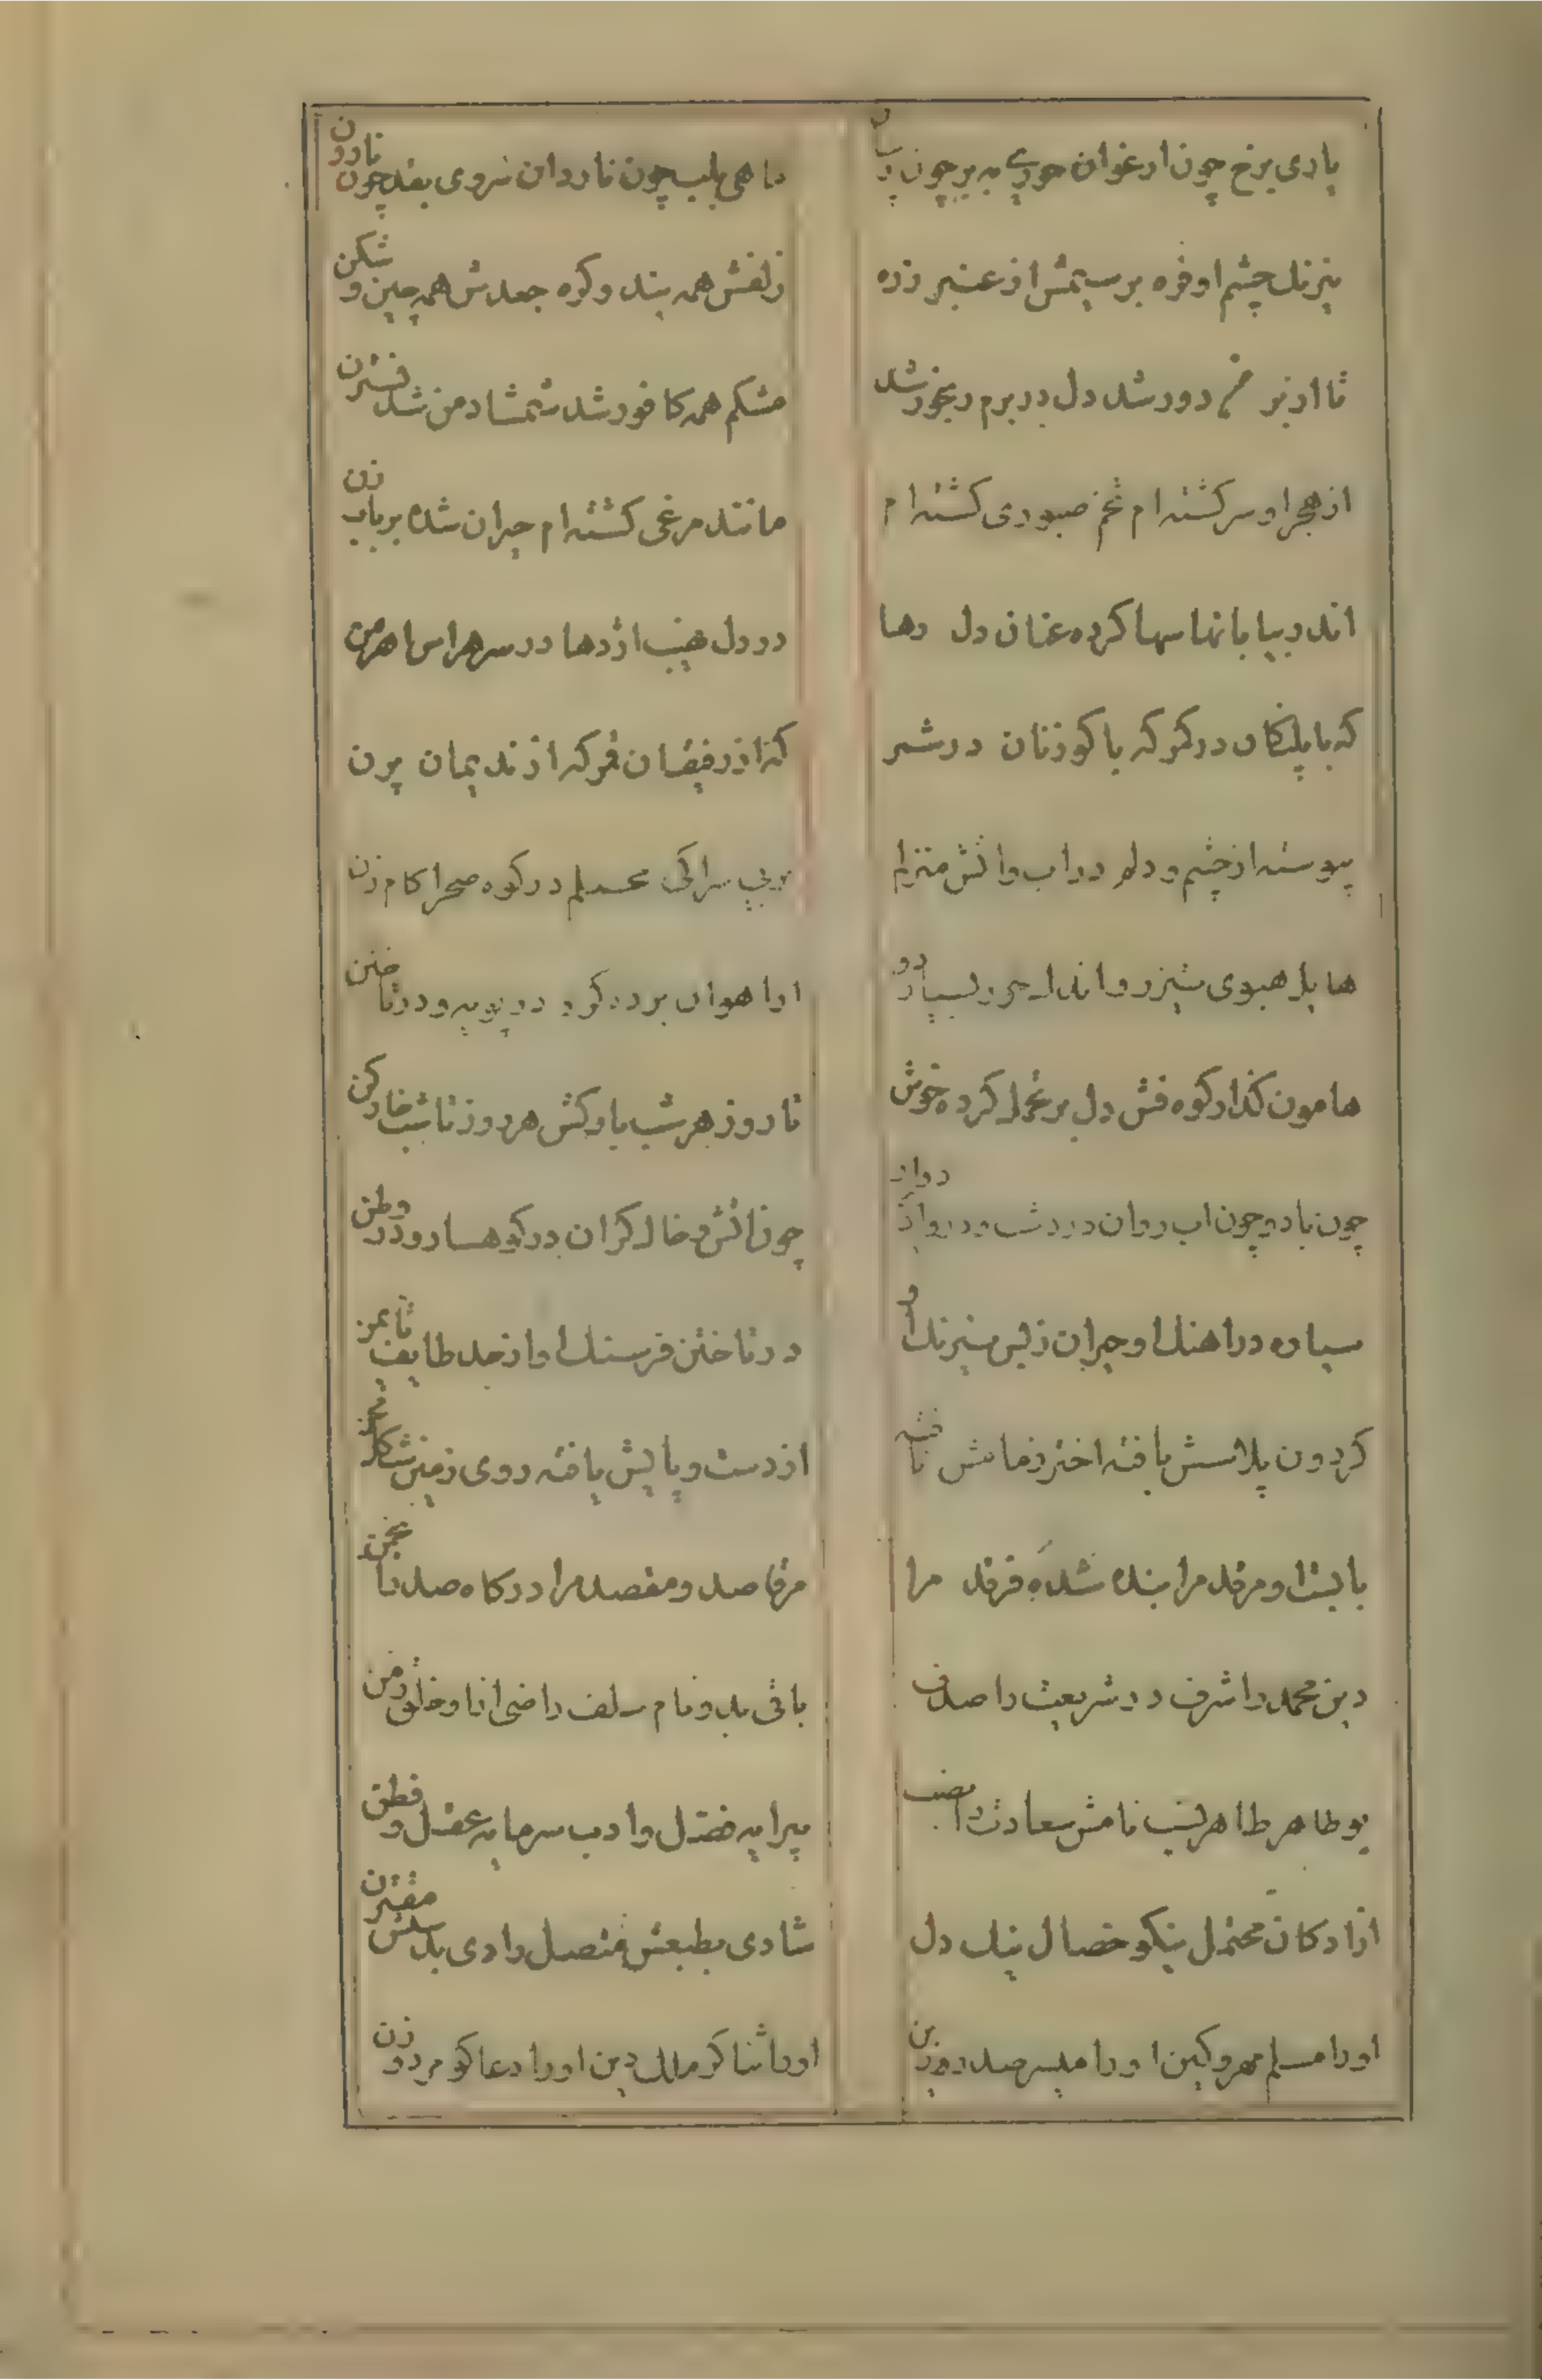 یاری برخ چون ارغوان حوری به بر چون پرنیان
ماهی بلب چون ناردان سروی بقد چون نارون
نیرنك چشم او فره بر سیمش از عنبر زره
زلفش همه بند و کره جعدش همه چین و شکن
تا از بر من دور شد دل در برم رنجور شد
مشکم همه کافور شد شمشاد من شد نسترن
از هجر او سرکشته ام تخم صبوری کشته ام
مانند مرغی کشته ام حیران شده بر بابزن
اندر بیابانها سها کرده عنان دل رها
در دل نهیب اژدها در سر هراس اهرمن
که با پلنکان در کمر که با کوزنان در شمر
که از رفیقان قمر که از ندیمان پرن
پیوسته از چشم و دلم در اب واتش منزلم
بر بی سراکی محملم در کوه صحرا کام زن
هامون کذار کوه فش دل بر تحمل کرده خوش
تا روز هر شب بارکش هر روز تا شب خارکن
چون باد و چون اب روان در دشت و در وادی دوان
چون اتش و خاك کران در کوهسار و در وطن
سیاره در اهنك او حیران زبس نیرنك او
در تاختن فرسنك او از حد طایف تا یمن
کردون پلاسش بافته اختر زمامش تافته
از دست و پایش یافته روی زمین شکل
دین محمد را شرف در شریعت را صدف
باقی بدو نام سلف راضی ازو خلق زمن
بوطاهر طاهر نسب نامش سعادت را
پیرایه فضل و ادب سرمایه عقل و فطن
ازادکان محتمل نیکو خصال نیك دل
شادی بطبعش متصل رادی بدستش مقترن
او را مسلم مهر و کین او را میسر صدر
او را ثنا کر ملك دین او را دعا کو مرد و زن